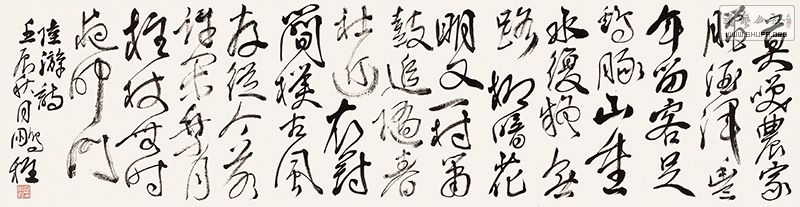 莫笑農家
臘酒渾豐
年留客足
雞豚山重
水複疑無
路柳暗花
明又一村簫
鼓追隨春
社近衣冠
簡樸古風
存從今若
許閒乘月
拄杖無時
夜叩門
陸游詩
壬辰秋月